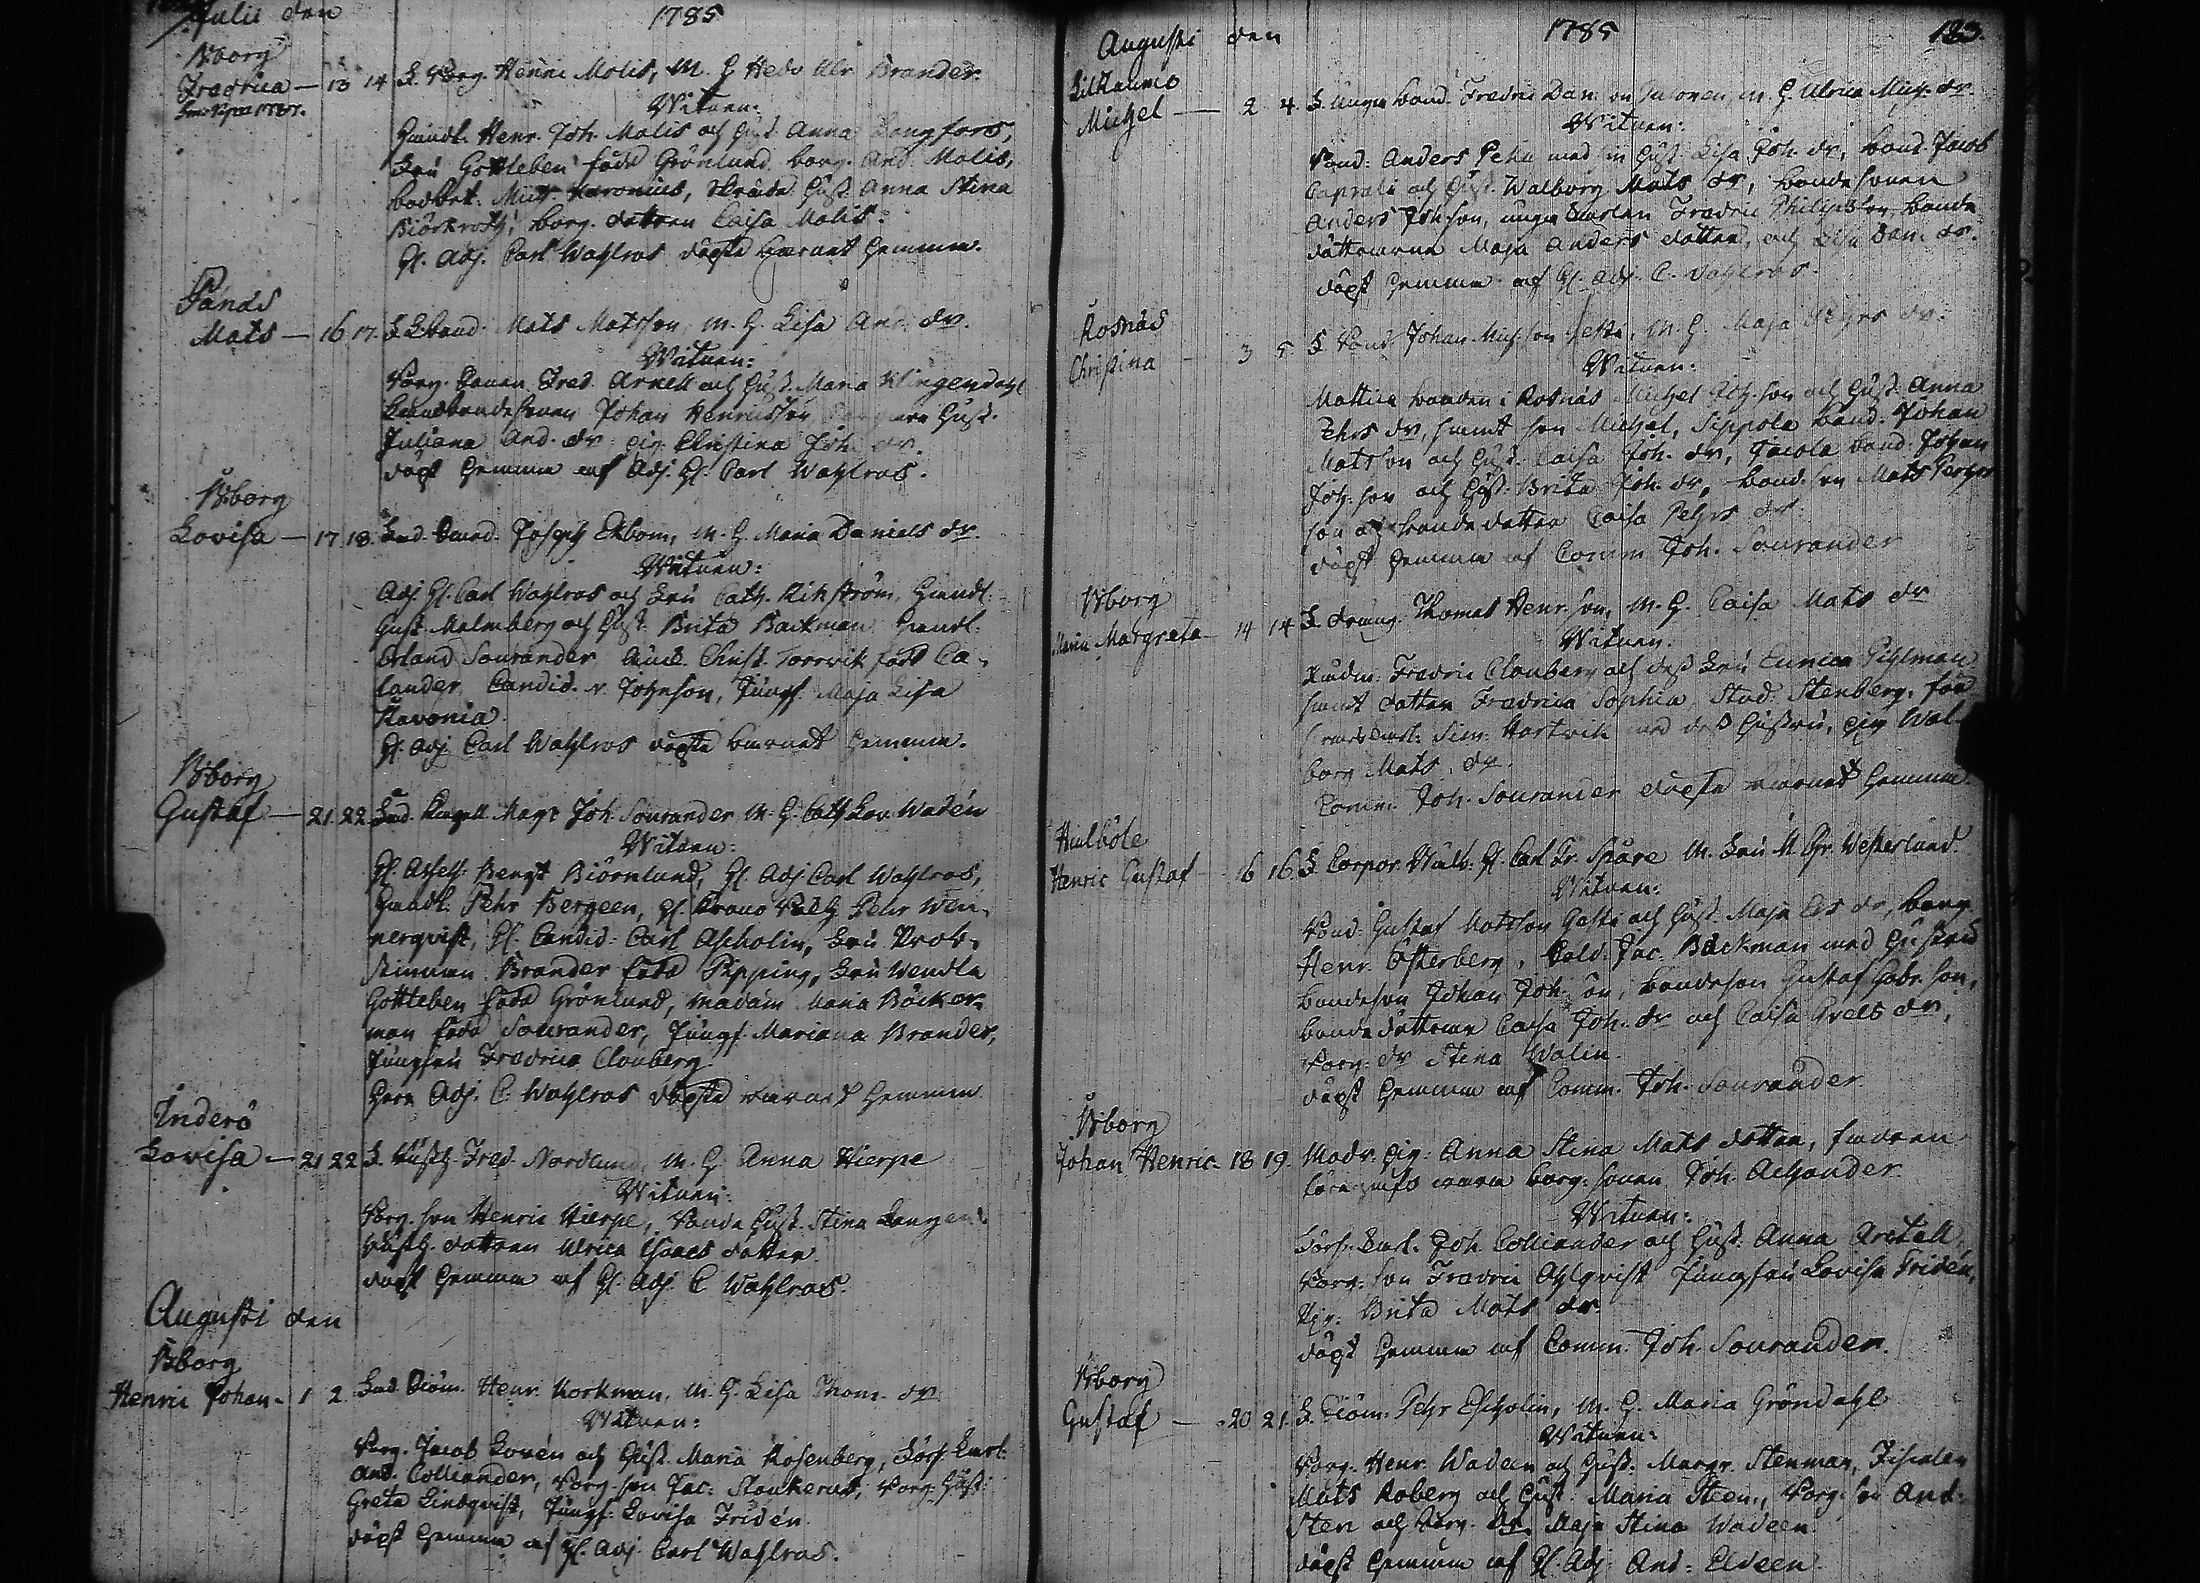 Julii den 1785
Bborg
Fredrica — 13 14 F. Borg. Henric Molis, M. H. Hedv. Ulr. Brander.
Witnen:
Handl. Henr. Joh. Molis och Hust. Anna Langfors,
Fru Gottleben född Grönlund, borg. And. Molis,
Hust. Anna Stina
Biörkroth, borg. dottren Caisa Molis.
H. Adj. Carl Wahlros döpte barnet hemma.
Panäs
Mats — 16 17. F. Bond. Mats Matsson, M. H. Lisa And. dr.
Witnen:
Borg. Sonen Fred. Arkell och Hust. Maria Klingendahl
Landbondesonen Johan Henricsson, Hust.
Juliana And. dr. pig. Christina Joh. dr.
döpt hemma af Adj. H. Carl Wahlros.
Bborg
Lovisa — 17 18. Joseph Ekbom, M. H. Maria Daniels dr.
Witnen:
Adj. H. Carl Wahlros och Fru Cath. Kihlström, Handl.
Gust. Malmberg och Hust. Brita Backman, Handl.
Erland Sourander, Christ. född Ca-
lander, Candid. Johnson, Jungf. Maja Lisa
Stavonia.
H. Adj. Carl Wahlros döpte barnet hemma.
Bborg
Gustaf — 21 22. Mag. Joh. Sourander M. H. Cath. Lov. Wadén
Witnen:
H. Bengt Biörnlund, H. Adj. Carl Wahlros,
Handl. Pehr Bergeen, H. Pehr Wen-
nerqvist, H. Candid. Carl Ascholin, Fru Prob-
stinnan Brander född Pipping, Fru Wendla
Gottleben född Grönlund, Madam Maria Böcker-
man född Sourander, Jungf. Mariana Brander,
Jungfru Fredrica Clouberg.
Herr Adj. C. Wahlros döpte barnet hemma.
Inderö
Lovisa — 21 22 F. Fred. Nordlund, M. H. Anna Hierpe
Witnen:
Borg. son Henric Hierpe, Bonde Hust. Stina
dottren Ulrica Isaacs dotter
döpt hemma af H. Adj. C. Wahlros.
Augusti den
Bborg
Henric Johan — 1 2. Henr. Korkman, M. H. Lisa Thom. dr.
Witnen:
Borg. Jacob Lovén och Hust. Maria Rosenberg,
And. Colliander, Borg. son Jac. Stenkerus, Borg. Hust.
Greta Lindqvist, Jungf. Lovisa Fridén.
döpt hemma af H. Adj. Carl Wahlros.
Augusti den 1785 123.
Michel — 2 4. Fredric Dan. son M. H. Ulrica Mich. dr.
Witnen:
Bond. Anders Peku med sin Hust. Lisa Joh. dr., bond. Jacob
Caprali och Hust. Walborg Mats dr., bondesonen
Anders Johson, Fredric Philipsson, bonde
döttrarna Maja Anders dotter, och Lisa Dan. dr.
döpt hemma af H. Adj. C. Wahlros.
Rosnäs
Christina — 3 5. F. Bond. Johan Mich. son M. H. Maja Pehrs dr.
Witnen:
Mattila bonden i Rosnäs Michel son och Hust. Anna
Pehrs dr., samt son Michel, Sippola bond. Johan
Matsson och Hust. Caisa Joh. dr., Jacola bond. Johan
Joh. son och Hust. Brita Joh. dr., bond. son Mats
son och bonde dottren Caisa Pehrs dr.
döpt hemma af Comm. Joh. Sourander
Bborg
Maria Margreta — 14 14 F. dreng. Thomas Henr. son, M. H. Caisa Mats dr.
Witnen.
Fredric Clouberg och dess Fru Eunica Pihlman
samt dotter Fredrica Sophia, Stud. Stenberg,
Sim. Hartwik med dess Hustru, pig. Wal-
borg Mats dr.
Comm. Joh. Sourander döpte barnet hemma.
Hulböle
Henric Gustaf — 16 16. F. Corpor. H. Carl Fr. Spåre M. Fru M. Gr. Westerlund.
Witnen:
Bond. Gustaf Matsson och Hust. Maja dr., borg.
Henr. Österberg, Sold. Jac. Backman med Hustru
bondeson Johan Joh. son, bondeson Gustaf Gabr. son,
bonde döttrarna Caisa Joh. dr. och Caisa Grels dr.,
Borg. dr. Stina Walin.
döpt hemma af Comm. Joh. Sourander
Bborg
Johan Henric — 18 19. Modr. pig. Anna Stina Mats dotter, fadren
vara borg. sonen Joh. Achander
Witnen:
Joh. Colliander och Hust. Anna Arctell,
Borg. son Fredric Ahlqvist, Jungfru Lovisa Fridén,
Pig. Brita Mats dr.
döpt hemma af Comm. Joh. Sourander.
Bborg
Gustaf — 20 21. Pehr Escholin, M. H. Maria Gröndahl
Witnen:
Borg. Henr. Wadeen och Hust. Margr. Stenman,
Mats Roberg och Hust. Maria Steen, Borg. son And.
Sten och borg. dr. Maja Stina Wadeen
döpt hemma af H. Adj. And. Eldeen